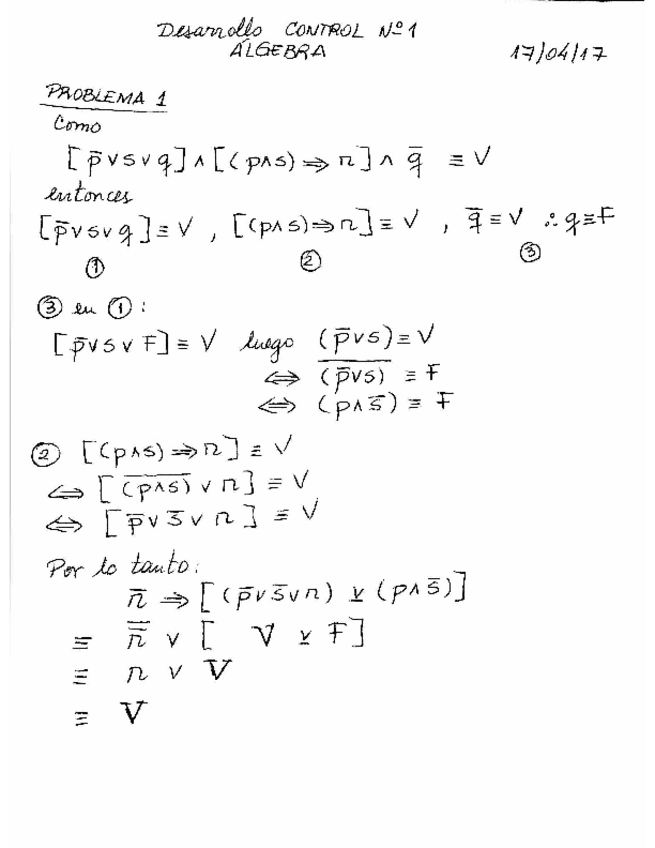 Desarrollo CONTROL Nº 1
ÁLGEBRA 17/04/17
PROBLEMA 1
Como
[p̅ ∨ s ∨ q] ∧ [(p ∧ s) ⇒ r] ∧ q̅ ≡ V
entonces
[p̅ ∨ s ∨ q] ≡ V , [(p ∧ s) ⇒ r] ≡ V , q̅ ≡ V ∴ q ≡ F
① ② ③
③ en ① :
[p̅ ∨ s ∨ F] ≡ V luego (p̅ ∨ s) ≡ V
⇔ \overline{(p̅ ∨ s)} ≡ F
⇔ (p ∧ s̅) ≡ F
② [(p ∧ s) ⇒ r] ≡ V
⇔ [\overline{(p ∧ s)} ∨ r] ≡ V
⇔ [p̅ ∨ s̅ ∨ r] ≡ V
Por lo tanto:
r̅ ⇒ [(p̅ ∨ s̅ ∨ r) ⊻ (p ∧ s̅)]
≡ \overline{r̅} ∨ [ V ⊻ F]
≡ r ∨ V
≡ V